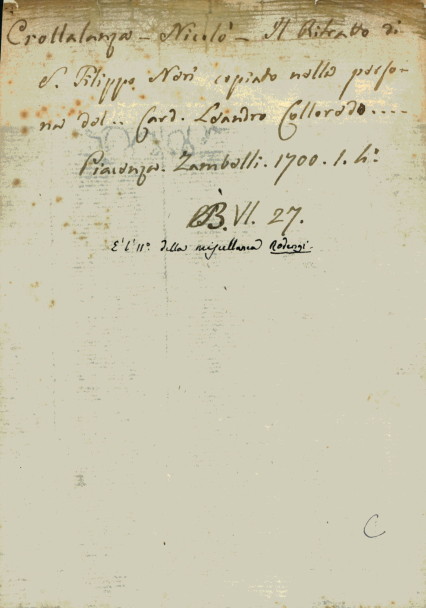 Crottalanza - Nicolò - Il Ritratto di
S. Filippo Neri copiato nella perso-
na del .. Card. Leandro Colloredo ....
Piacenza. Zambelli. 1700. 1. h.º
B. VI. 27.
È l'11º della miscellanea
C